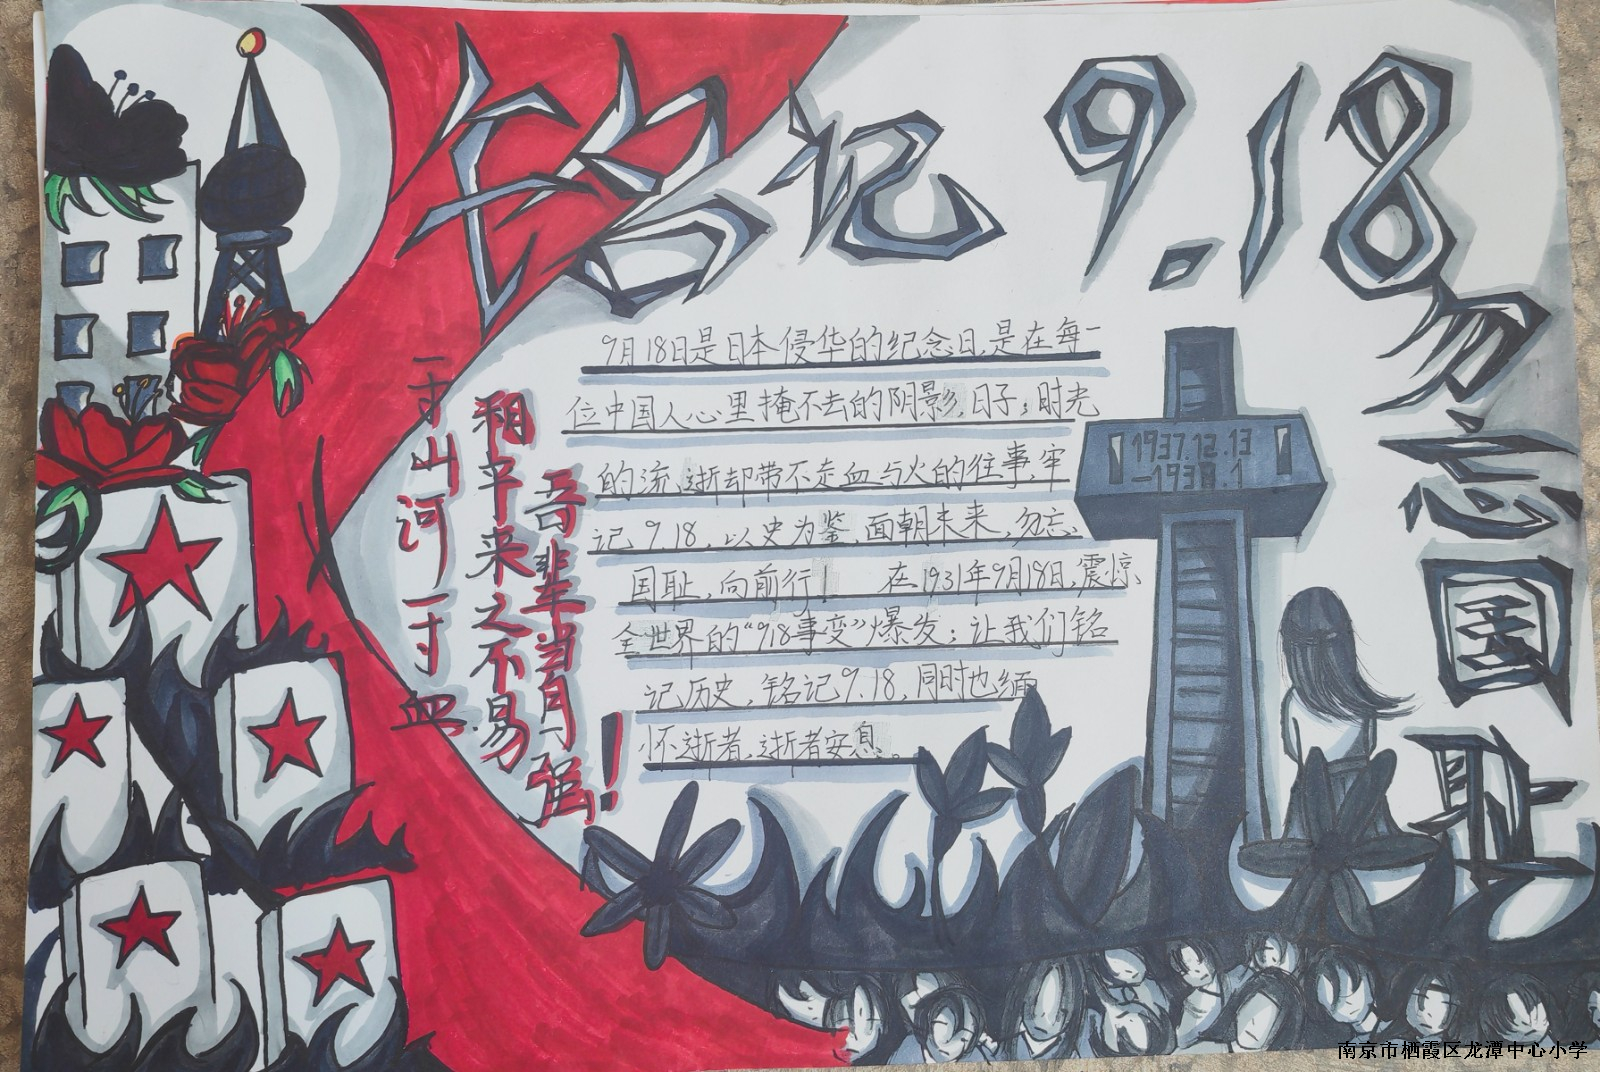 铭记9.18
勿忘国耻
9月18日是日本侵华的纪念日,是在每一
位中国人心里掩不去的阴影,日子;时光
的流逝却带不走血与火的往事,牢
记9.18,以史为鉴,面朝未来,勿忘
国耻,向前行! 在1931年9月18日,震惊
全世界的“9.18事变”爆发;让我们铭
记历史,铭记9.18,同时也缅
怀逝者,逝者安息。
一寸山河一寸血
和平来之不易
吾辈当自强!
1937.12.13
-1938.1
南京市栖霞区龙潭中心小学